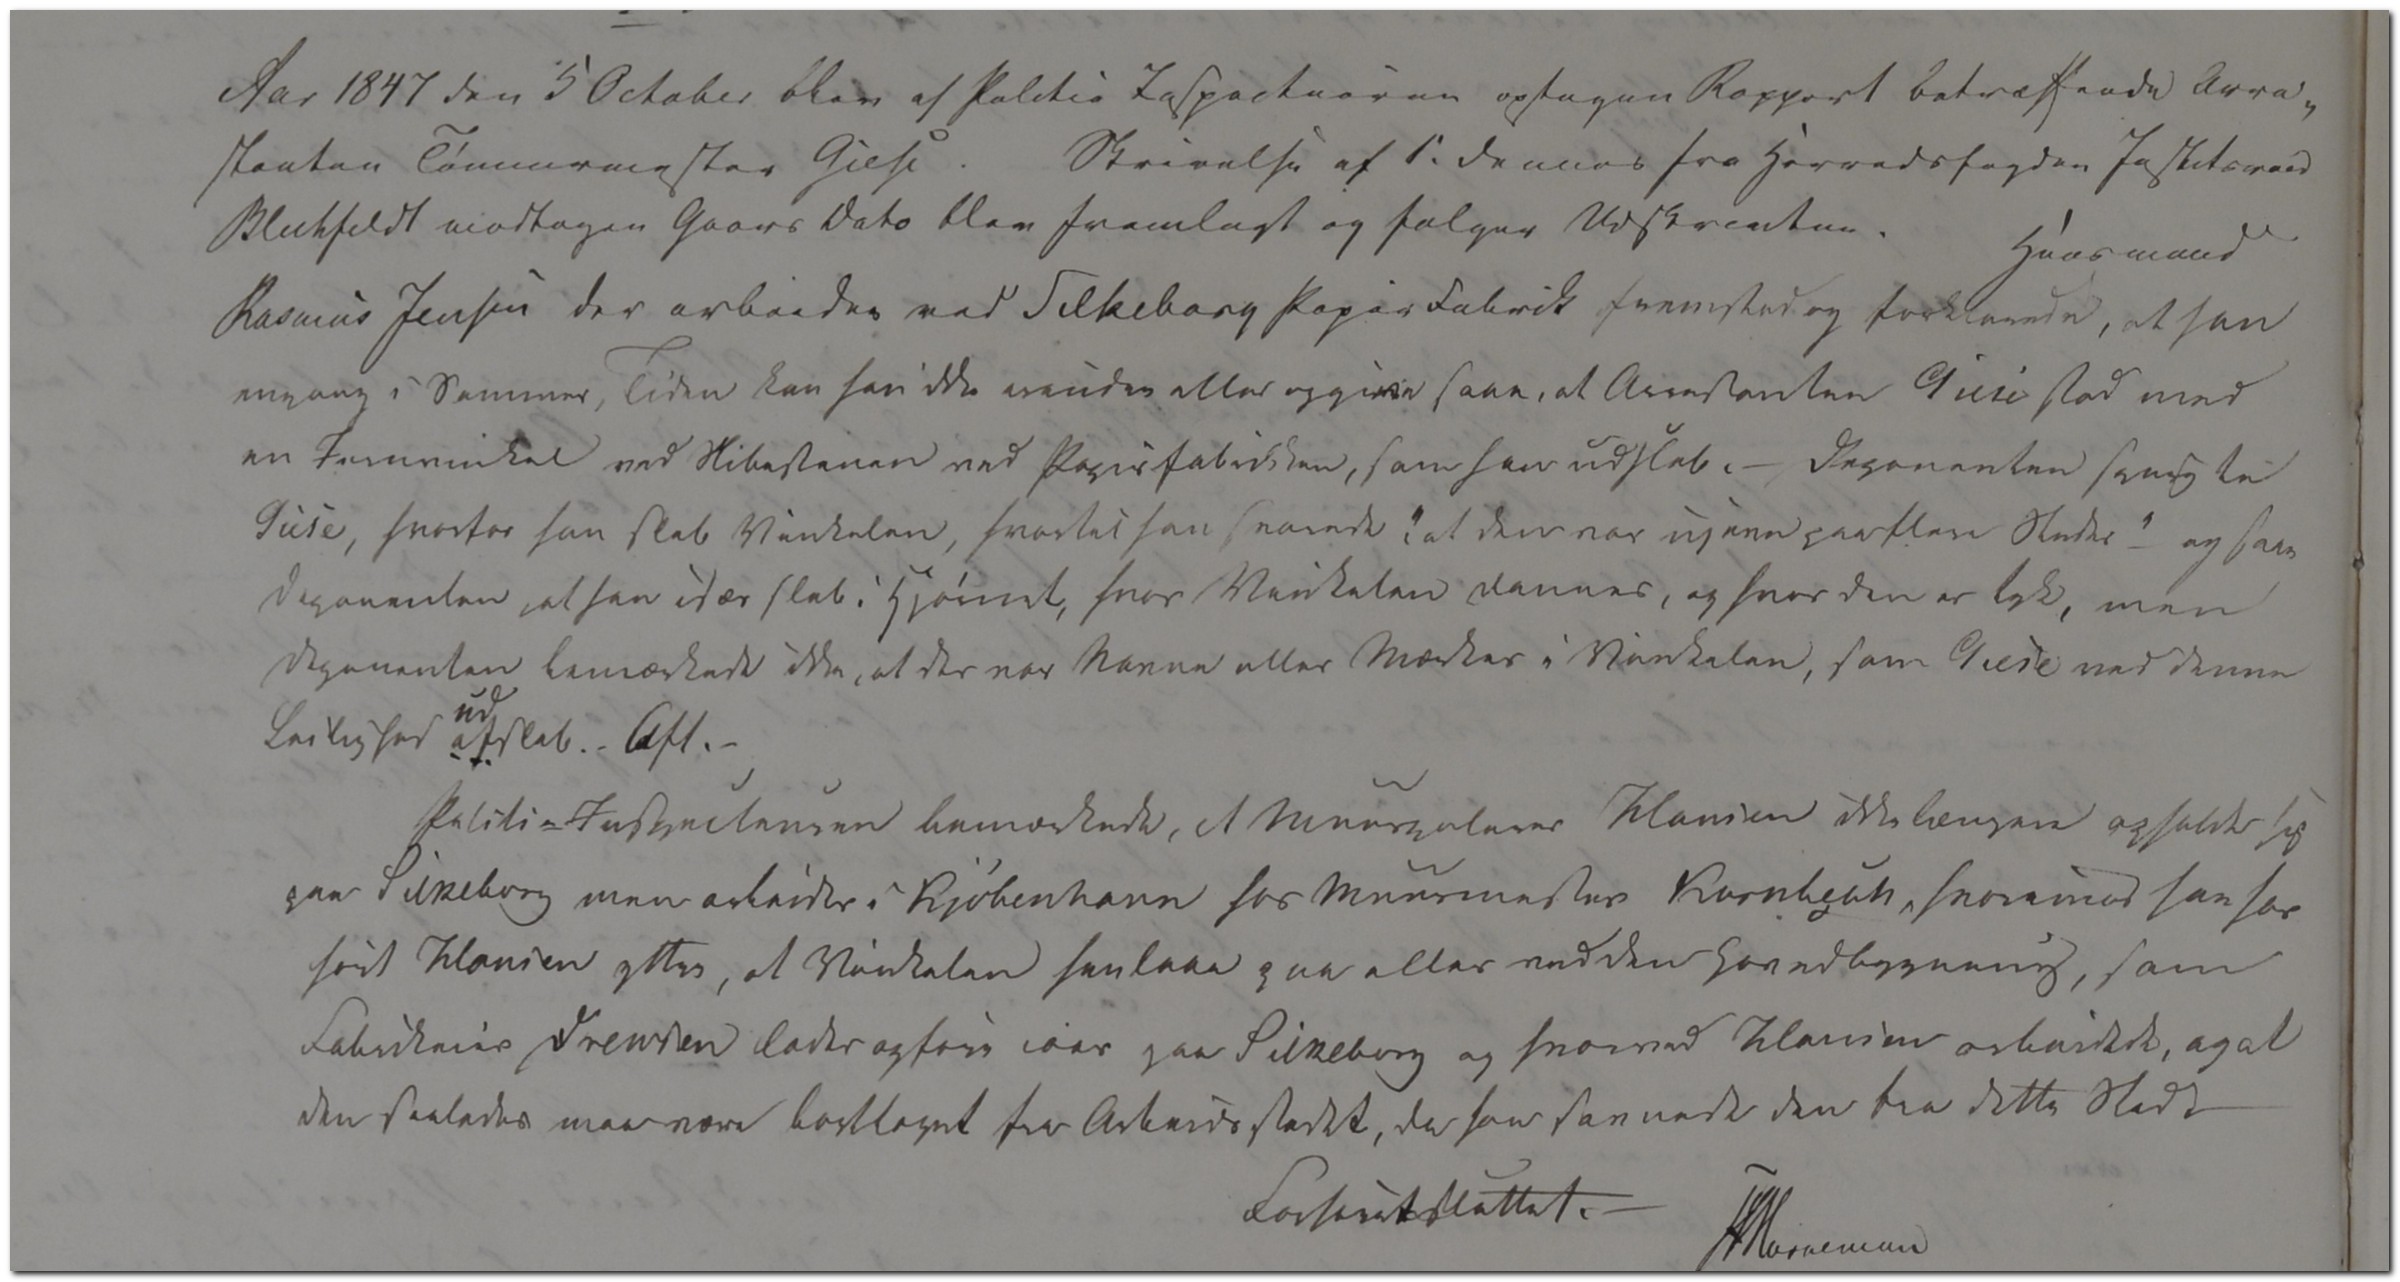 Aar 1847 den 5 October blev af Politie Inspecteuren optagen Rapport betræffende Arre-
stanten Tömmermester Giese. Skrivelse af 1. dennes fra Herredsfogden Justitsraad
Blechfeldt modtagen Gaars Dato blev fremlagt og følger Udskrivten.
Huusmand
Rasmus Jensen der arbeider ved Silkeborg Papirfabrik fremstod og forklarede, at han
engang i Sommer, Tiden kan han ikke erindre eller opgive saae, at Arrestanten Giese stod med
en Jernvinkel ved Slibestenen ved Papirfabrikken, som han udsleb. – Deponenten spurgte
Giese, hvorfor han sleb Vinkelen, hvortil han svarede "at den var ujevn paa flere Steder" – og saae
Deponenten, at han især sleb i Hjørnet, hvor Vinkelen dannes, og hvor den er tyk, men
Deponenten bemærkede ikke, at der var Navne eller Mærker i Vinkelen, som Giese ved denne
ud
Leilighed afsleb. – Aft. –
Politi-Inspecteuren bemærkede, at Muurpoleer Klausen ikke længere opholder sig
paa Silkeborg men arbeider i Kjøbenhavn hos Muurmester Kornbech, hvorimod han har
hørt Klausen yttre, at Vinkelen henlaae paa eller ved den Hovedbygning, som
Fabrikeier Drewsen lader opføre iaar paa Silkeborg og hvorved Klausen arbeidede, og at
den saaledes maa være borttaget fra Arbeidsstedet, da han savnede den fra dette Sted
Forhøret sluttet. –